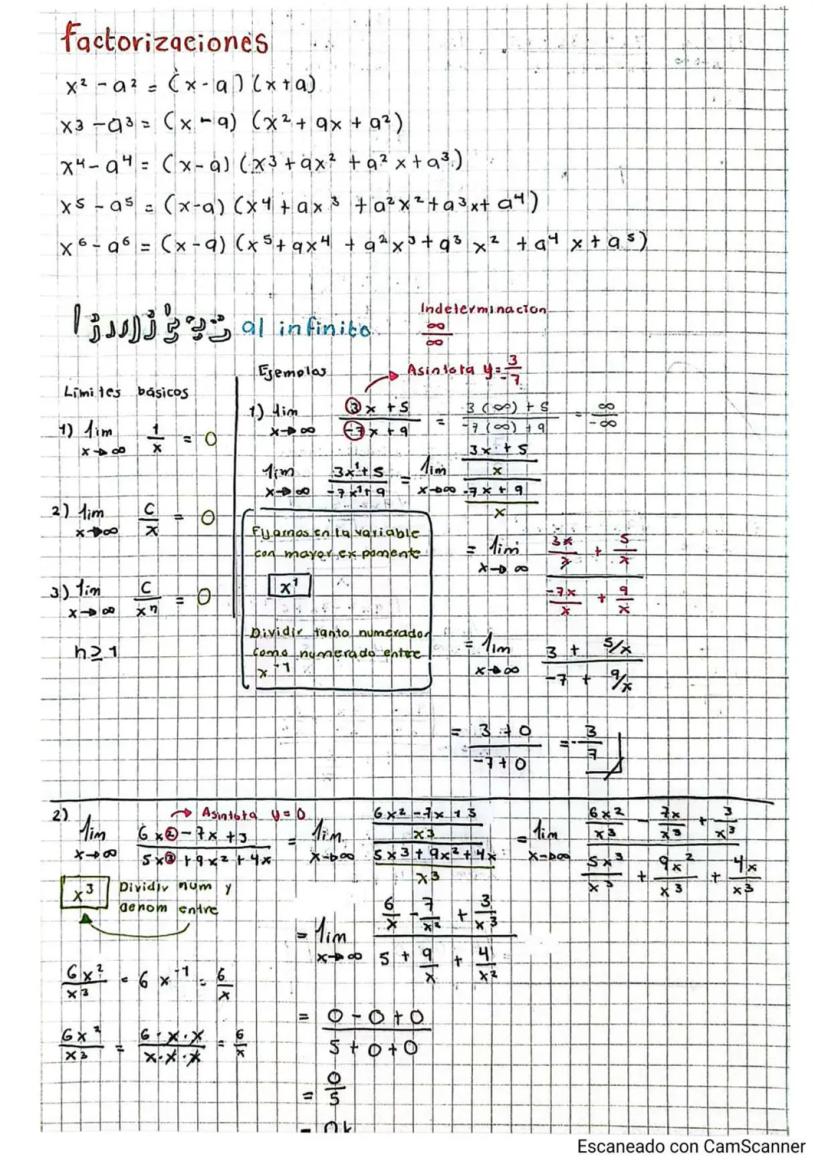 Factorizaciones
x² - a² = (x-a) (x+a)
x3 - a3 = (x-a) (x² + ax + a²)
x⁴ - a⁴ = (x-a) (x³ + ax² + a²x + a³)
x⁵ - a⁵ = (x-a) (x⁴ + ax³ + a²x² + a³x + a⁴)
x⁶ - a⁶ = (x-a) (x⁵ + ax⁴ + a²x³ + a³x² + a⁴x + a⁵)
al infinito
Indeterminacion
∞/∞
Límites básicos
1) lim x→∞ 1/x = 0
2) lim x→∞ C/x = 0
3) lim x→∞ C/xⁿ = 0
n≥1
Ejemplos
Asintota y = 3/-7
1) lim x→∞ (3x + 5)/(-7x + 9) = (3(∞) + 5)/(-7(∞) + 9) = ∞/-∞
lim x→∞ (3x¹ + 5)/(-7x¹ + 9) = lim x→∞ ((3x + 5)/x)/((-7x + 9)/x)
Fijamos en la variable
con mayor exponente
x¹
Dividir tanto numerador
como numerado entre
= lim x→∞ (3x/x + 5/x)/(-7x/x + 9/x)
= lim x→∞ (3 + 5/x)/(-7 + 9/x)
= (3 + 0)/(-7 + 0) = -3/7
2) Asintota y = 0
lim x→∞ (6x² - 7x + 3)/(5x³ + 9x² + 4x) = lim x→∞ ((6x² - 7x + 3)/x3)/((5x3 + 9x² + 4x)/x3) = lim x→∞ (6x²/x3 - 7x/x3 + 3/x3)/(5x³/x3 + 9x²/x3 + 4x/x3)
x³ Dividir num y
denom entre
= lim x→∞ (6/x - 7/x² + 3/x3)/(5 + 9/x + 4/x²)
6x²/x3 = 6x⁻¹ = 6/x
6x²/x3 = 6·x·x/x·x·x = 6/x
= (0 - 0 + 0)/(5 + 0 + 0)
= 0/5
Escaneado con CamScanner